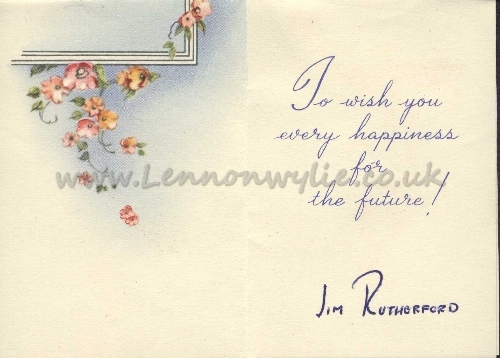 To wish you
every happiness
for
the future!
www.Lennonwylie.co.uk
Jim Rutherford